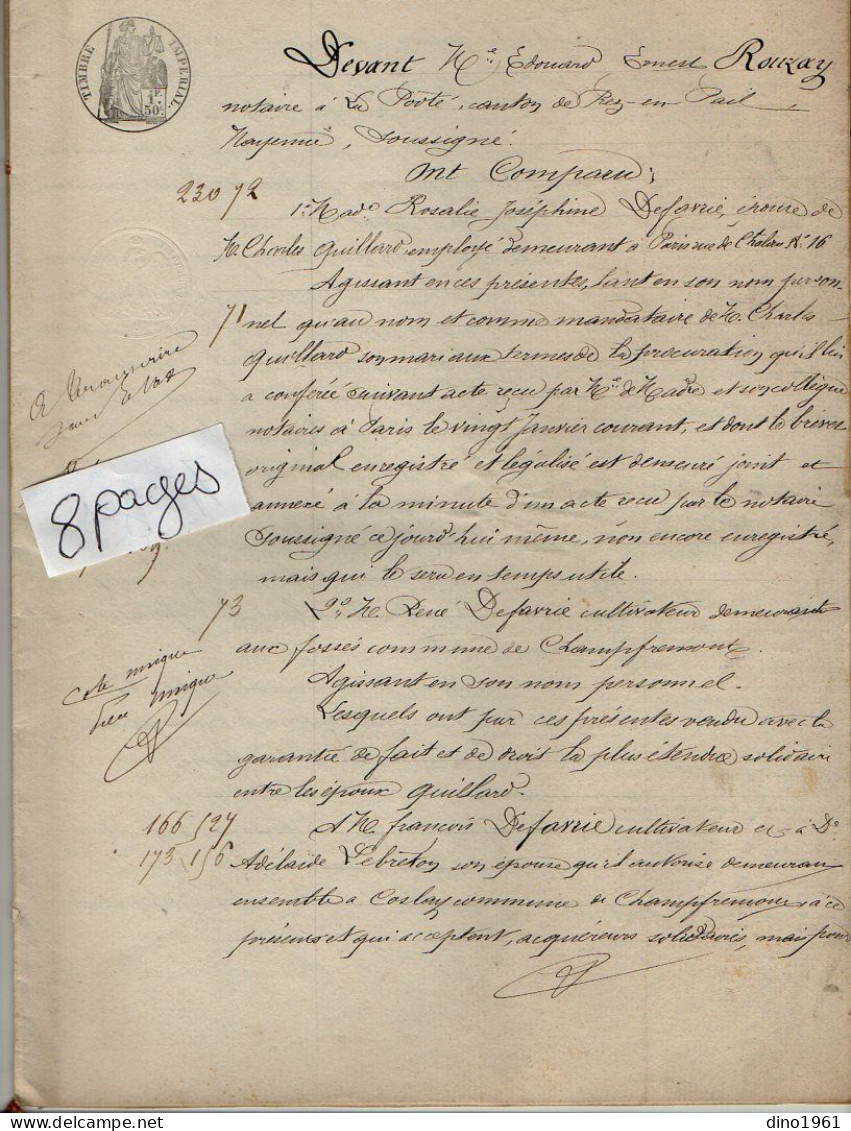 TIMBRE IMPERIAL.
1F.
50c.
Devant Me Édouard Ernest Rouzay
notaire à La Pooté, canton de Prez-en-Pail
Mayenne, soussigné.
Ont Comparu;
230 72
1° Made Rosalie Joséphine Defavrie, épouse de
M. Charles Quillard employé demeurant à Paris rue de Chalon No 16
Agissant en ces présentes, tant en son nom person-
71
nel qu'au nom et comme mandataire de M. Charles
Quillard son mari aux termes de la procuration qu'il lui
a conférée suivant acte reçu par Me de Madre et son collègue
notaires à Paris le vingt Janvier courant, et dont le brevet
original enregistré et légalisé est demeuré joint et
8 pages
annexé à la minute d'un acte reçu par le notaire
soussigné ce jourd'hui même, non encore enregistré,
mais qui le sera en temps utile.
73
2° M. René Defavrie cultivateur demeurant
aux fossés commune de Champfremont.
Cote unique
Pièce unique
Agissant en son nom personnel.
Lesquels ont par ces présentes vendu avec la
garantie de fait et de droit la plus étendue solidaire
entre les époux Quillard.
166 527
A M. françois Defavrie cultivateur et à De
173 156
Adélaïde Lebreton son épouse qu'il autorise demeurant
ensemble à Coslay commune de Champfremont à ce
présents et qui acceptent, acquéreurs solidaires, mais pour
dino1961